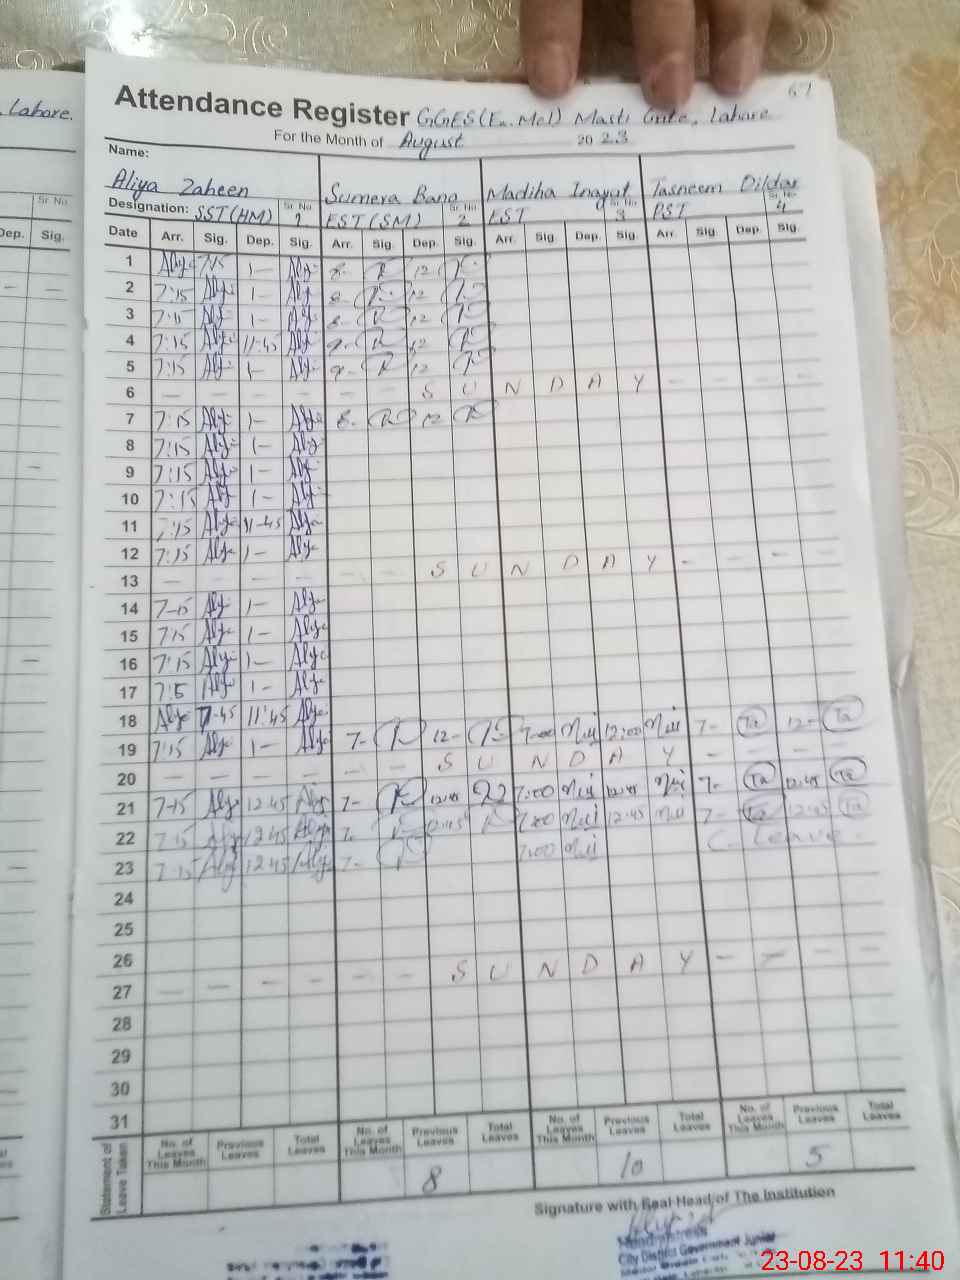 67
Lahore.
Attendance Register GGES (Ex. Mcl) Masti Gate, Lahore
For the Month of August 2023
Name:
Aliya Zaheen Sumera Bano Madiha Inayat Tasneem Dildar
Designation: SST (HM) Sr. No. 1 EST (SM) Sr. No. 2 EST Sr. No. 3 PST Sr. No. 4
Sr. No.
Dep. Sig.
Date Arr. Sig. Dep. Sig. Arr. Sig. Dep. Sig. Arr. Sig. Dep. Sig. Arr. Sig. Dep. Sig.
1 Alye 7:15 1- Alye 8- R 12 R
2 7:15 Alye 1- Alye 8- R 12 R
3 7:15 Alye 1- Alye 8- R 12 R
4 7:15 Alye 11:45 Alye R 12 R
5 7:15 Alye 1- Alye R 12 R
6 — — — — — — S U N D A Y — — — —
7 7:15 Alye 1- Alye 8- R 12 R
8 7:15 Alye 1- Alye
9 7:15 Alye 1- Alye
10 7:15 Alye 1- Alye
11 7:15 Alye 11-45 Alye
12 7:15 Alye 1- Alye
13 — — — — — — S U N D A Y — — — —
14 7-15 Alye 1- Alye
15 7:15 Alye 1- Alye
16 7:15 Alye 1- Alye
17 7:5 Alye 1- Alye
18 Alye 7-45 11:45 Alye
19 7:15 Alye 1- Alye 7- R 12- R 7:00 Mui 12:00 Mui 7- Ta 12- Ta
20 — — — — — — S U N D A Y — — — —
21 7-15 Alye 12:45 Alye 7- R 12:45 R 7:00 Mui 12:45 Mui 7- Ta 12:45 Ta
22 7:15 Alye 12:45 Alye 7- R 12:45 R 7:00 Mui 12:45 Mui 7- Ta 12:45 Ta
23 7-15 Alye 12:45 Alye 7- R 7:00 Mui C. Leave
24
25
26
27 — — — — — — S U N D A Y — — — —
28
29
30
31
Statement of Leave Taken
No. of Leaves This Month Previous Leaves Total Leaves No. of Leaves This Month Previous Leaves Total Leaves No. of Leaves This Month Previous Leaves Total Leaves No. of Leaves This Month Previous Leaves Total Leaves
8 10 5
Signature with Seal Head of The Institution
Headmistress
City District Government Junior
23-08-23 11:40